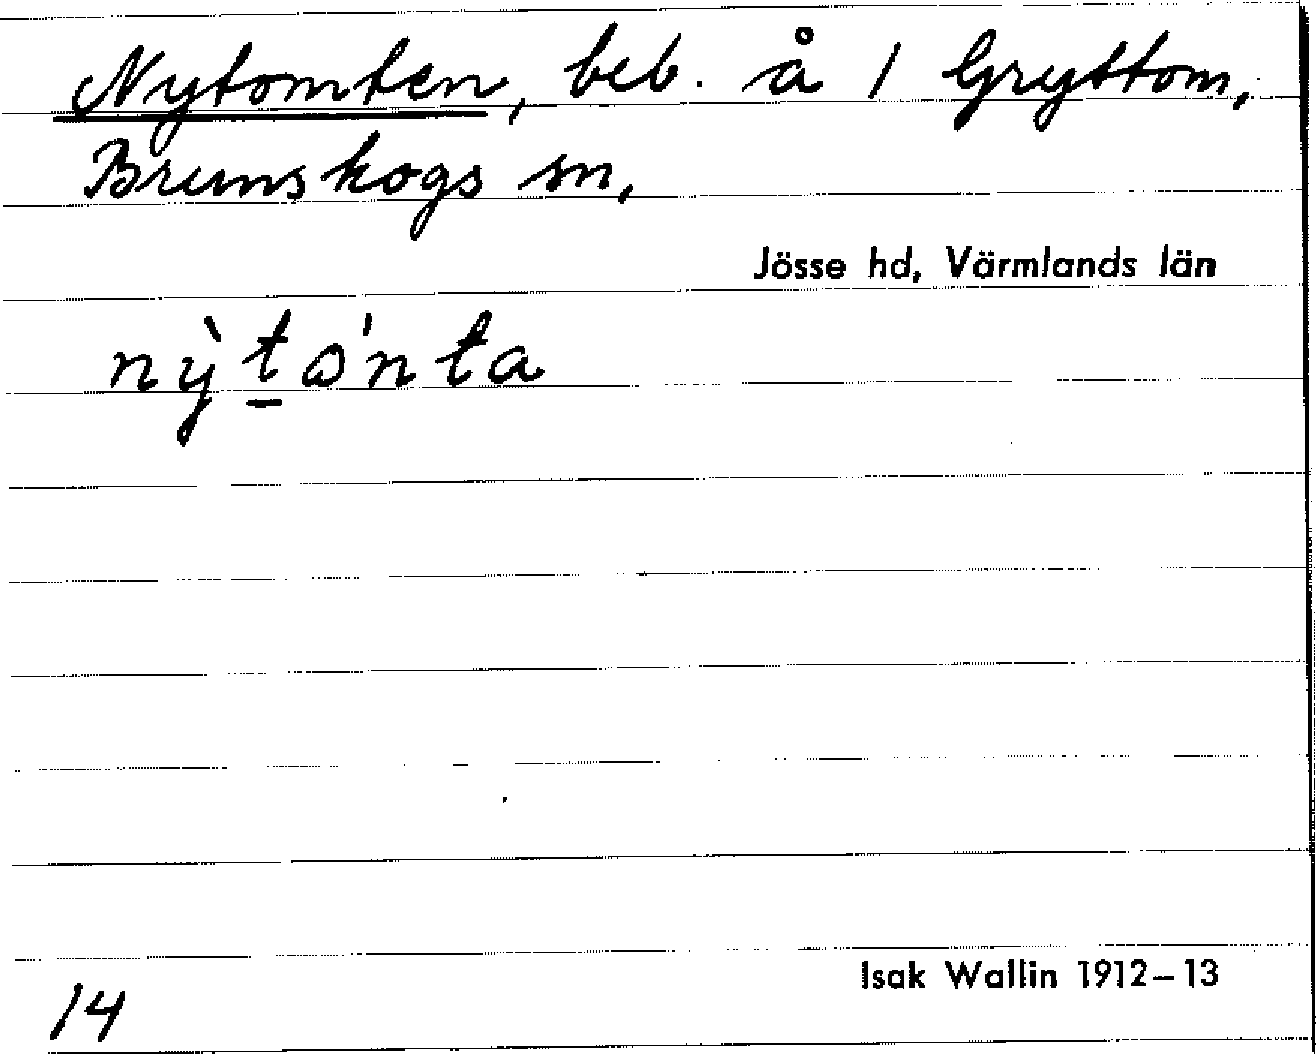 Nytomten, beb. å 1 Gryttom,
Brunskogs sn,
Jösse hd, Värmlands län
nỳt̠ɷ́nta
Isak Wallin 1912–13
14